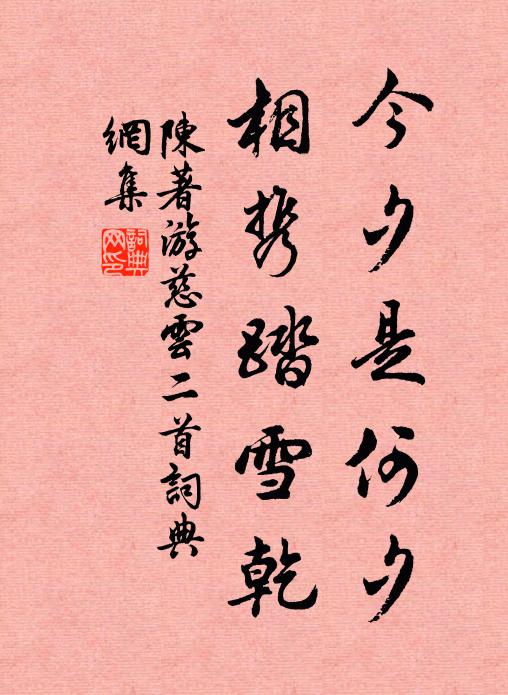 今夕是何夕
相携踏雪乾
陳著游慈雲二首詞典
網集
詞典網印